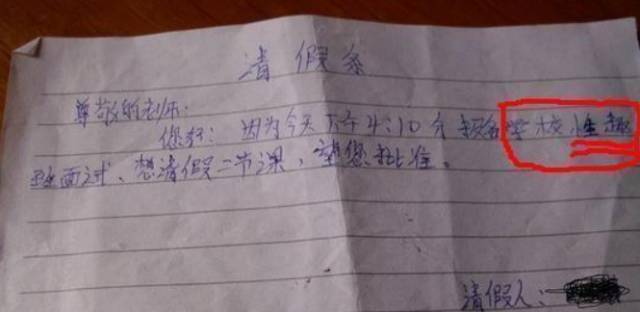 请假条
尊敬的老师:
您好:因为今天下午4:10分报名学校性趣
班面试、想请假二节课,望您批准。
请假人: